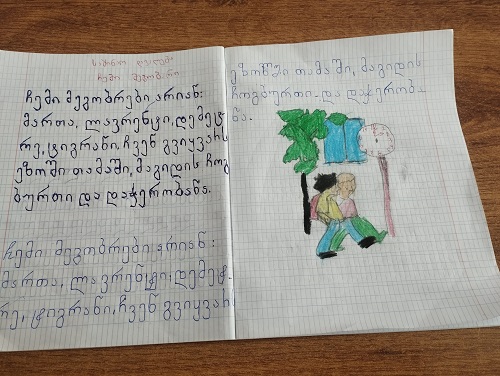 საშინაო დავალება
ჩემი მეგობარი
ჩემი მეგობრები არიან:
მართა, ლავრენტი, დემეტ-
რე, ტიგრანი. ჩვენ გვიყვარს
ეზოში თამაში, მაგიდის ჩოგ
ბურთი და დაჭერობანა.
ჩემი მეგობრები არიან:
მართა, ლავრენტი, დემეტ-
რე, ტიგრანი, ჩვენ გვიყვარს
ეზოში თამაში, მაგიდის
ჩოგბურთი და დაჭერობ-
ნა.